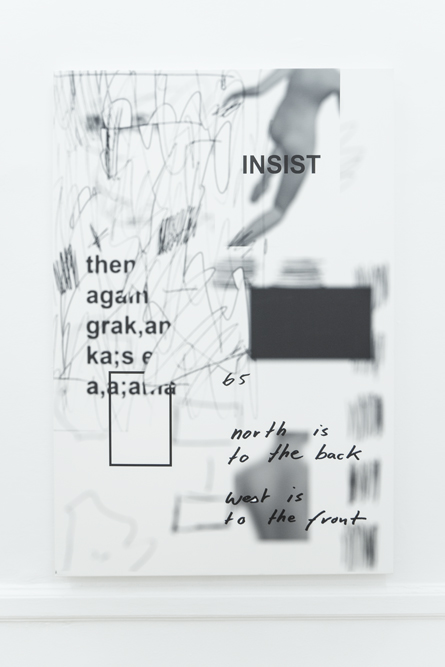 INSIST
then
again
grak,an
ka;s e
a,a;atha
65
north is
to the back
west is
to the front